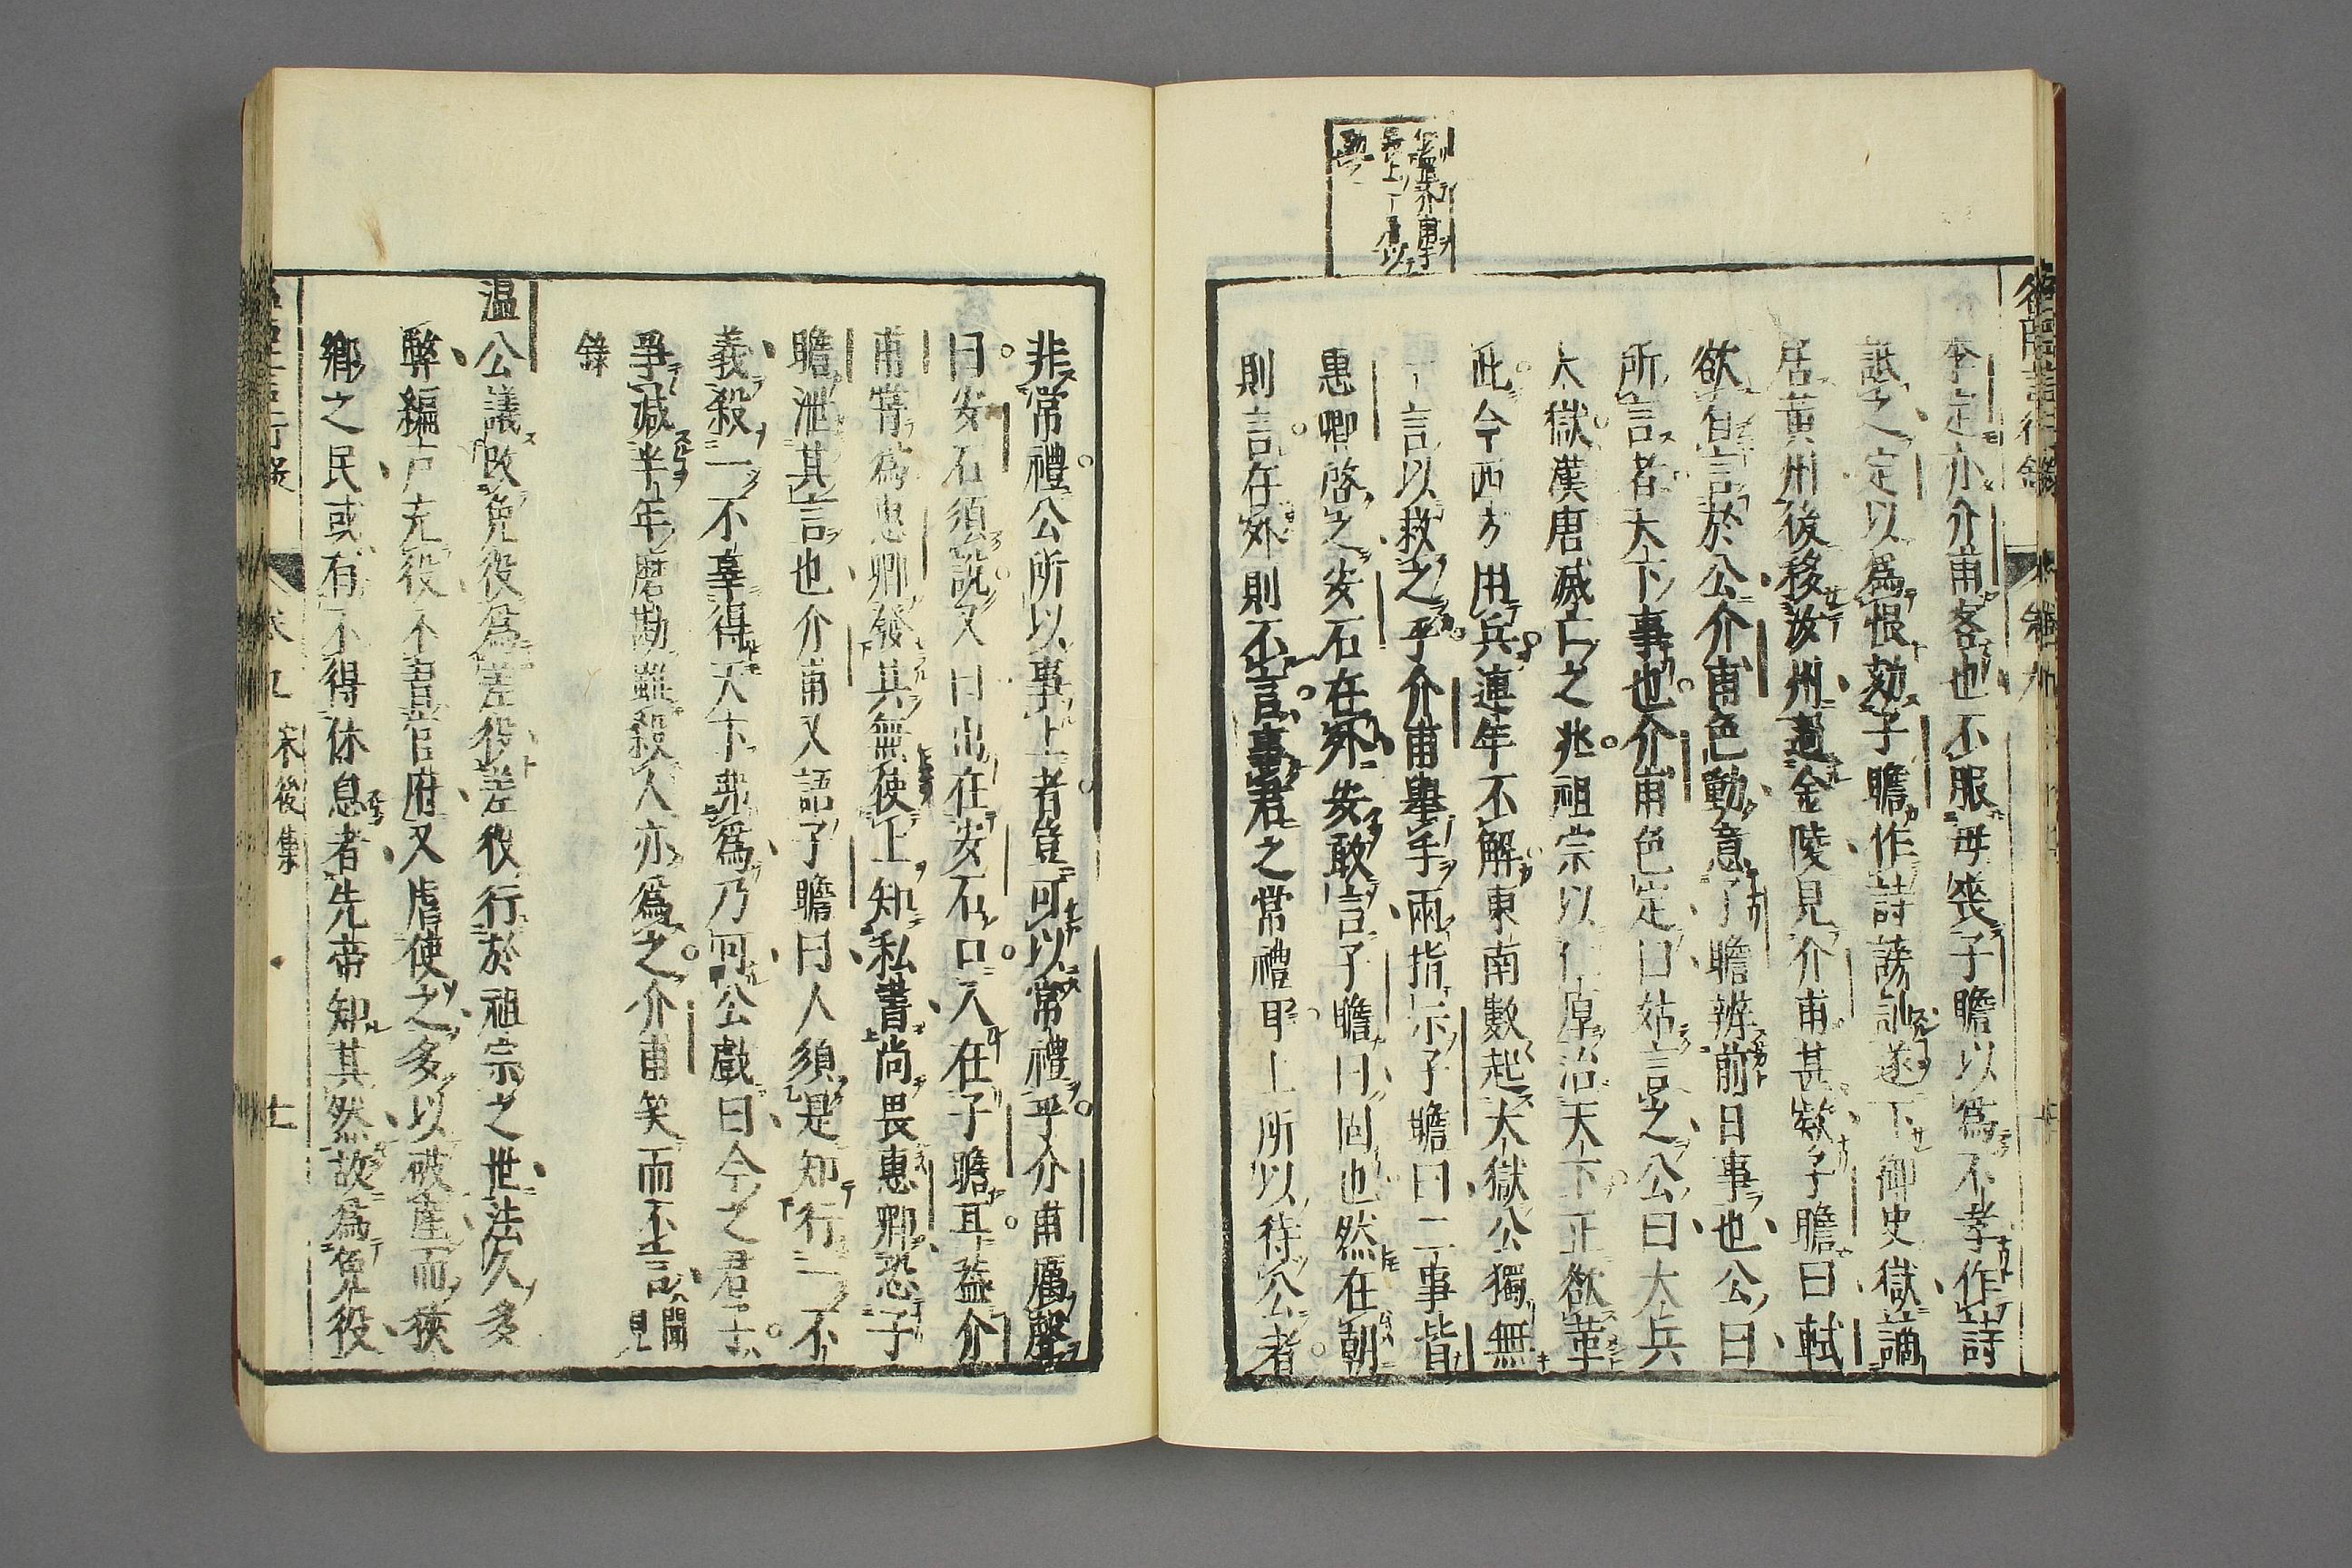 李定亦介甫客也不服母喪子瞻以爲不孝作詩
詆之定以爲恨劾子瞻作詩謗訕遂下御史獄謫
居黃州後移汝州過金陵見介甫甚欵子瞻曰軾
欲有言於公介甫色動意子瞻辨前日事也公曰
所言者天下事也介甫色定曰姑言之公曰大兵
大獄漢唐滅亡之兆祖宗以仁厚治天下正欲革
此今西方用兵連年不解東南數起大獄公獨無
一言以救之乎介甫擧手兩指示子瞻曰二事皆
惠卿啓之安石在外安敢言子瞻曰固也然在朝
則言在外則不言事君之常禮耳上所以待公者
非常禮公所以事上者豈可以常禮乎介甫厲聲
曰安石須說又曰出在安石口入在子瞻耳蓋介
甫嘗爲惠卿發其無使上知私書尚畏惠卿恐子
瞻泄其言也介甫又語子瞻曰人須是知行一不
義殺一不辜得天下弗爲乃可公戲曰今之君子
爭减半年磨勘雖殺人亦爲之介甫笑而不言聞見
錄
溫公議改免役爲差役差役行於祖宗之世法久多
弊編戶充役不習官府又虐使之多以破產而狹
鄉之民或有不得休息者先帝知其然故爲免役
宋後集